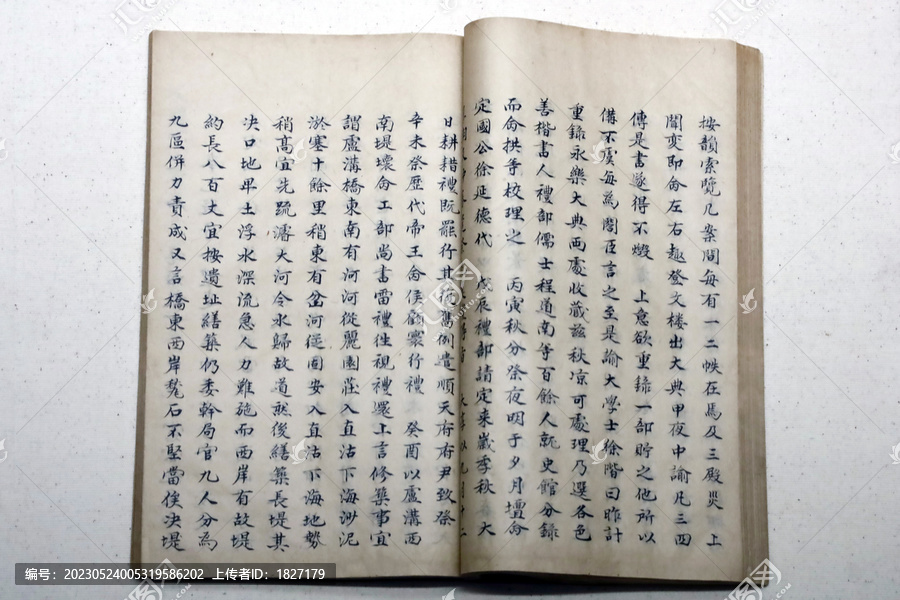 按韻索覽几案間每有一二帙在焉及三殿災 上
聞變即命左右趣登文楼出大典甲夜中諭凡三四
傳是書遂得不燬 上意欲重錄一部貯之他所以
備不虞每為閣臣言之至是諭大學士徐階曰昨計
重錄永樂大典兩處收藏兹秋凉可處理乃選各色
善楷書人禮部儒士程道南等百餘人就史館分錄
而命拱等校理之 丙寅秋分祭夜明于夕月壇命
定國公徐延德代 戊辰禮部請定来嵗季秋 大
日耕耤禮既罷行其
舊例遣順天府府尹致祭
辛未祭歷代帝王命侯顧寰行禮 癸酉以盧溝西
南堤壞命工部尚書雷禮徃視禮還上言修築事宜
謂盧溝橋東南有河河從麗園莊入直沽下海沙泥
淤塞十餘里稍東有岔河從固安入直沽下海地勢
稍高宜先䟽濬大河令水歸故道然後繕築長堤其
决口地卑土浮水深流急人力難施而西岸有故堤
約長八百丈宜按遺址繕築仍委幹局官九人分為
九區併力責成又言橋東西岸甃石不堅當俟决堤
编号：20230524005319586202 上传者ID：1827179